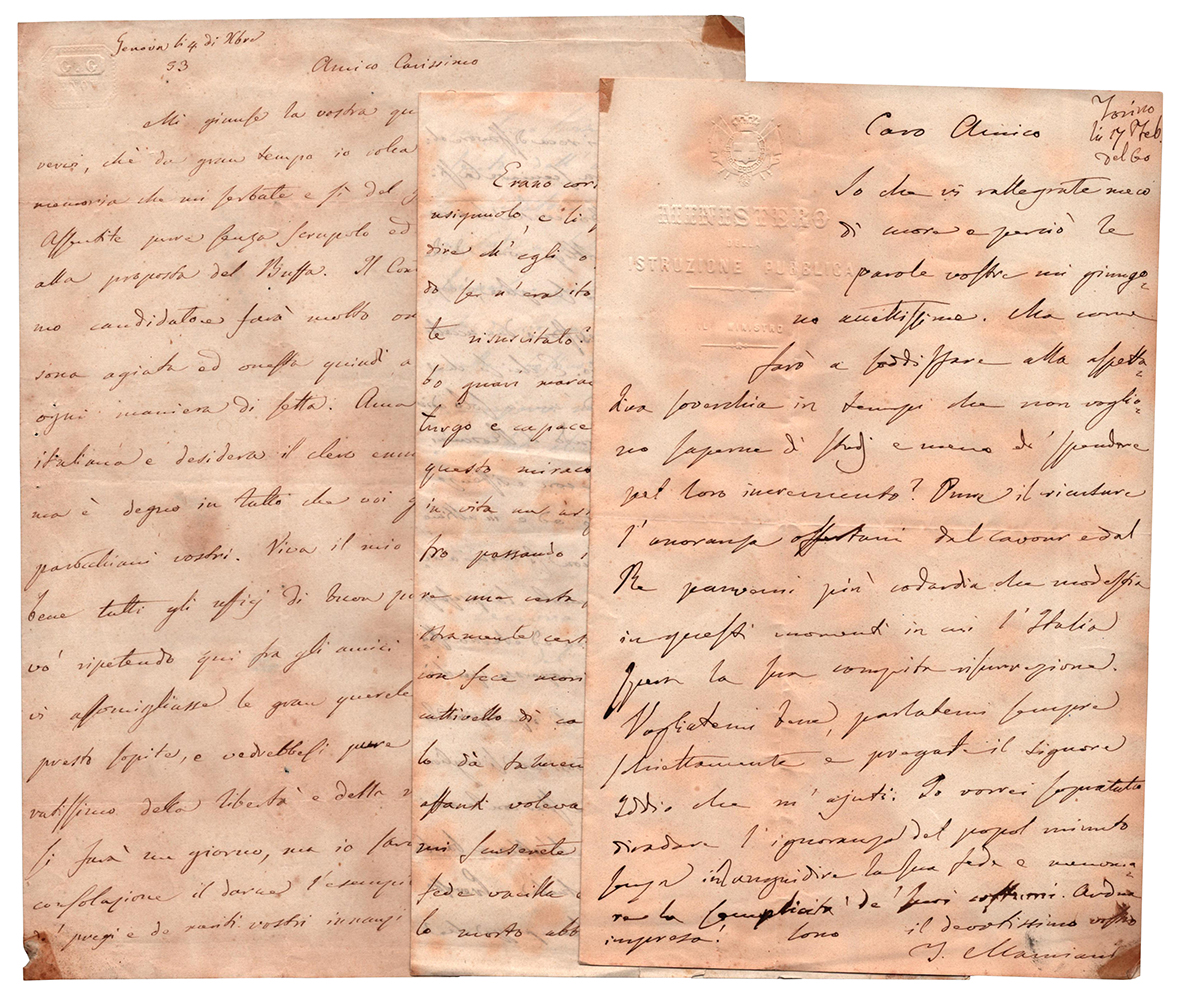 Genova li 4 di Xbre
53
G. G.
Amico Carissimo
Mi giunse la vostra
verci, chè da gran tempo io
memoria che mi serbate e sì del
Assentite pure senza scrupolo ed
alla proposta del Buffa. Il
mo candidatore farà molto
sona agiata ed onesta quindi a
ogni maniera di setta. Ama
italiana e desidera il clero
ma è degno in tutto che voi
parochiani vostri. Viva il mio
bene tutti gli uffizj di buon
vo' ripetendo qui fra gli amici
vi assomigliasse le gran querele
presto sopite, e vedrebbesi pure
vatissimo della libertà e della
si farà un giorno, ma io
consolazione il darne l'esempi
pregi e de vanti vostri innanzi
Erano
e li
dire ch'egli
do ser n'era ito
te risuscitato?
bo guari
turgo e capace
questo mirac
in vita un
tro passando
re una certa
ion fece mori
cattivello di ca
lo dà
astanti voleva
mi
fede vacilla
lo morto abb
MINISTERO
DELLA
ISTRUZIONE PUBBLICA
IL MINISTRO
Torino
li 17 Feb.
del 60
Caro Amico
So che vi rallegrate meco
di cuore e perciò le
parole vostre mi giungo=
no accettissime. Ma come
farò a soddisfare alla aspetta=
tiva soverchia in tempi che non voglio=
no saperne di studj e meno di spendere
pel loro incremento? Pure il ricusare
l'onoranza offertami dal Cavour e dal
Re parvemi più codardia che modestia
in questi momenti in cui l'Italia
spera la sua compita risurrezione.
Vogliatemi bene, parlatemi sempre
schiettamente e pregate il Signore
Iddio che m'ajuti. Io vorrei sopratutto
diradare l'ignoranza del popol minuto
senza illanguidire la sua fede e menoma=
re la semplicità de' suoi costumi. Ardua
impresa! Sono il devotissimo vostro
T. Mamiani